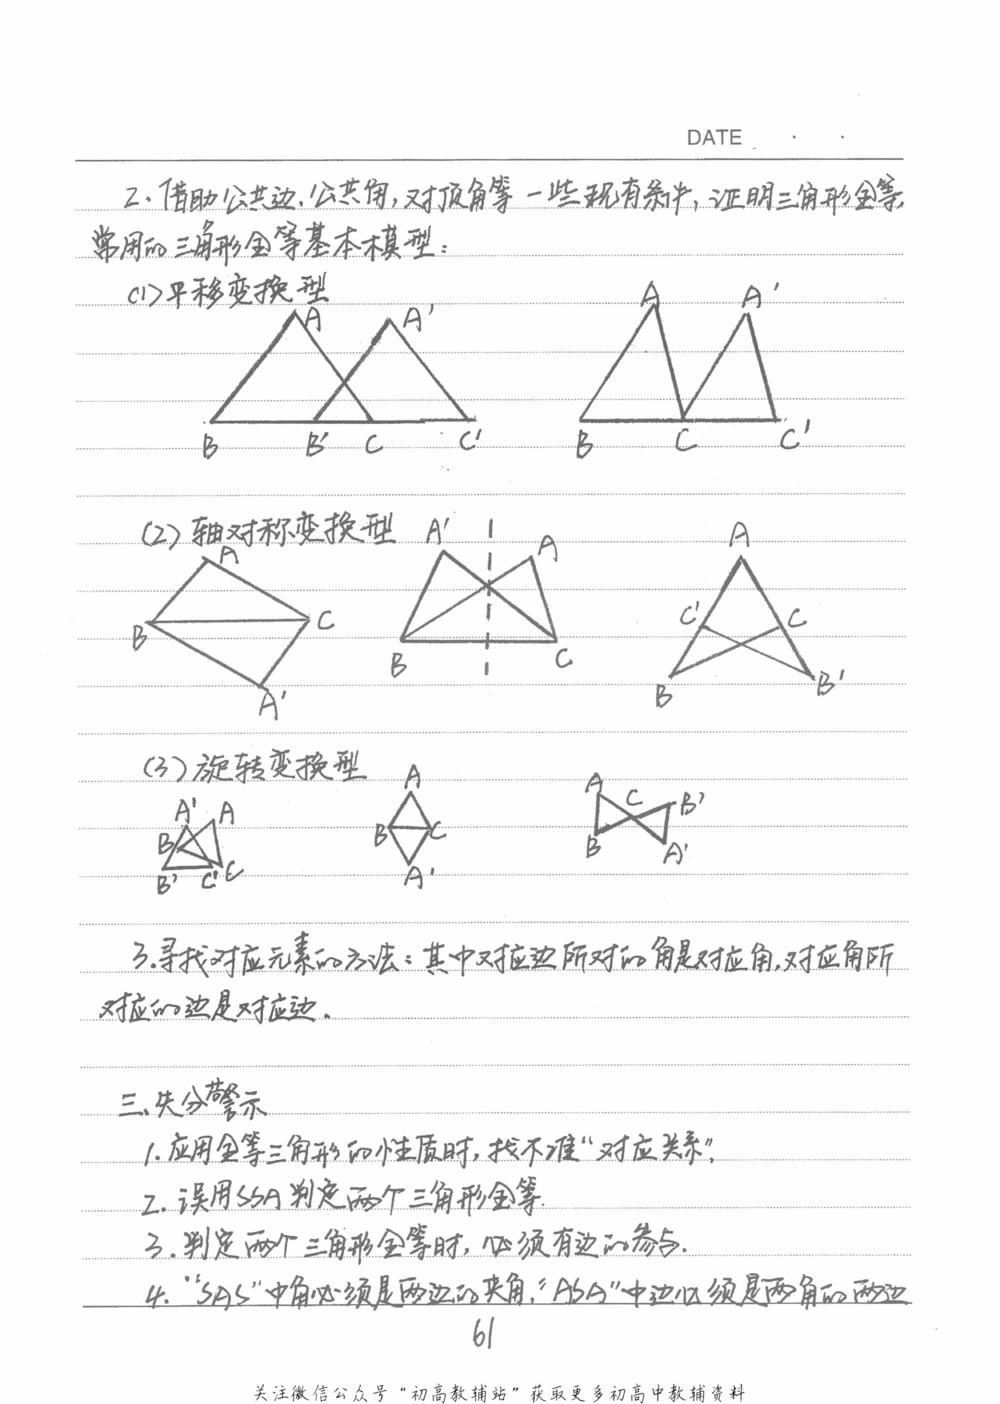 DATE . .
2. 借助公共边、公共角, 对顶角等一些现有条件, 证明三角形全等,
常用的三角形全等基本模型:
(1) 平移变换型
A A' A A'
B B' C C' B C C'
(2) 轴对称变换型
A A' A A
B C C' C
A' B C B B'
(3) 旋转变换型
A' A A A C B'
B B C B A'
B' C' C A'
3. 寻找对应元素的方法: 其中对应边所对的角是对应角, 对应角所
对应的边是对应边.
三、失分警示
1. 应用全等三角形的性质时, 找不准“对应关系”.
2. 误用SSA判定两个三角形全等.
3. 判定两个三角形全等时, 必须有边的参与.
4. “SAS”中角必须是两边的夹角, “ASA”中边必须是两角的两边
61
关注微信公众号“初高教辅站”获取更多初高中教辅资料